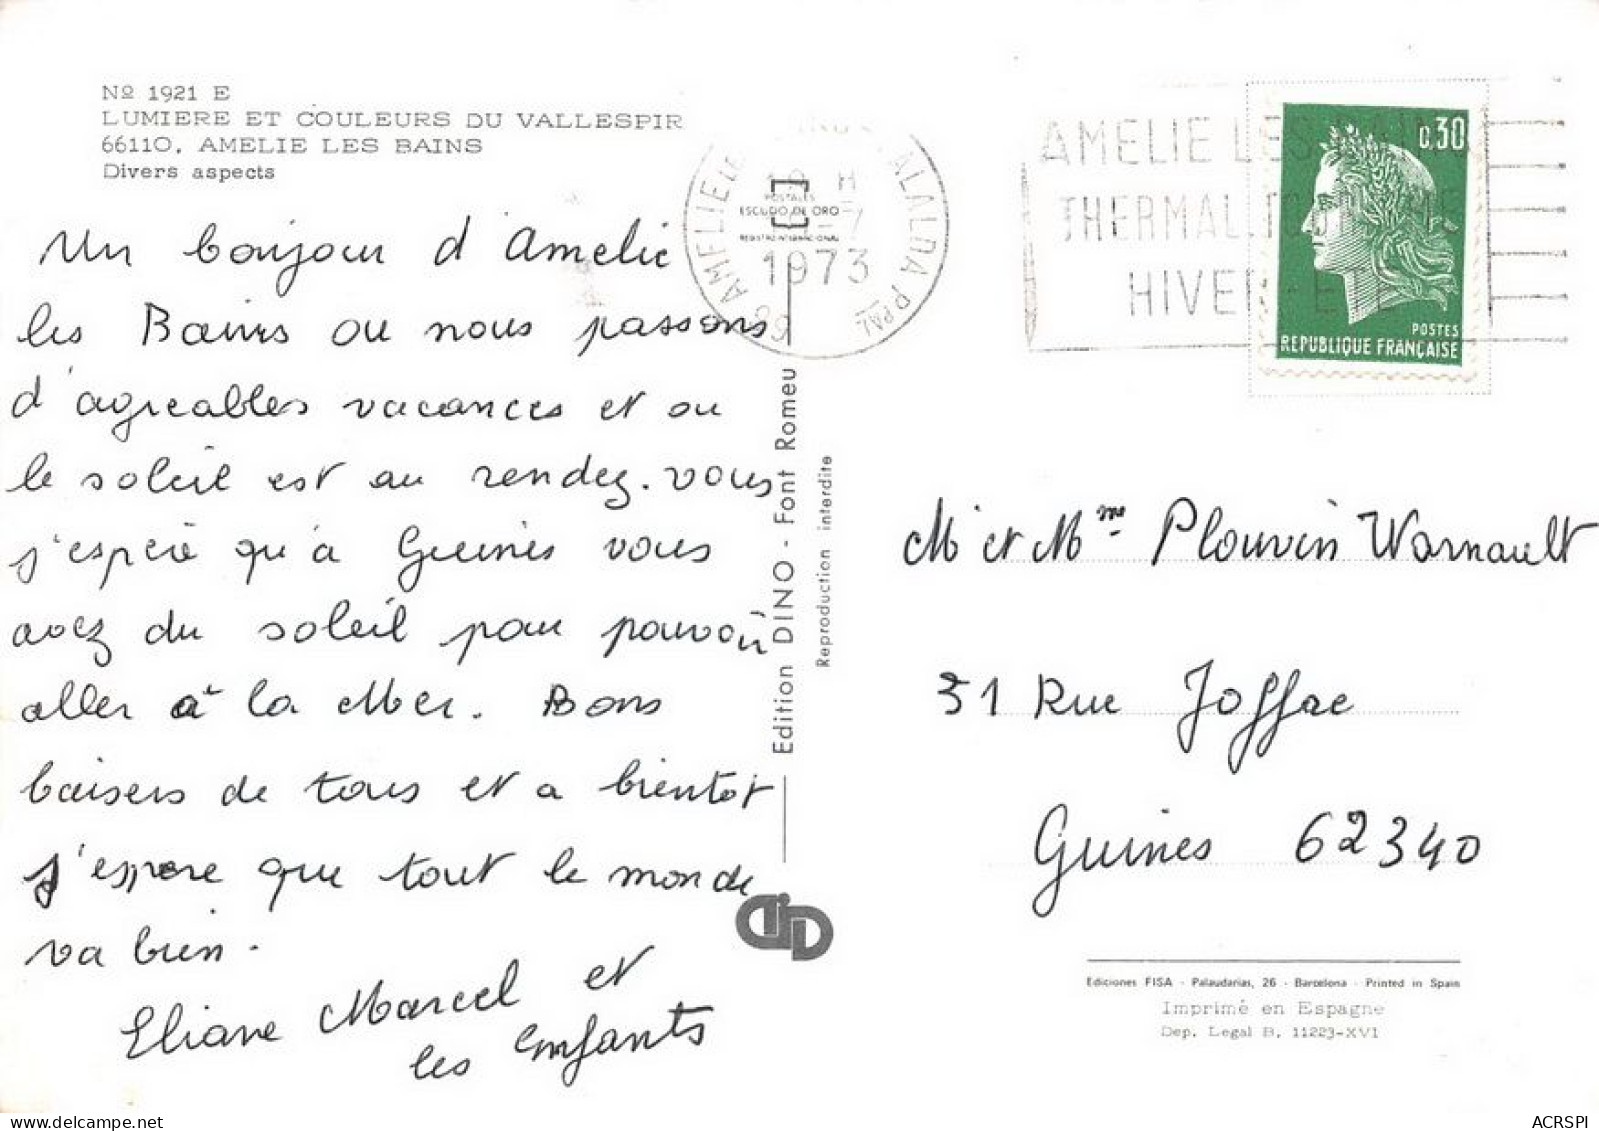 Nº 1921 E
LUMIERE ET COULEURS DU VALLESPIR
66110, AMELIE LES BAINS
Divers aspects
Un bonjour d'Amelie
les Bains ou nous passons
d'agreables vacances et ou
le soleil est au rendez-vous
j'espère qu'a Guines vous
avez du soleil pour pouvoir
aller à la Mer. Bons
baisers de tous et a bientot
j'espere que tout le monde
va bien.
Eliane Marcel et
les enfants
POSTALES
ESCUDO DE ORO
REGISTRO INTERNACIONAL
1973
66
Edition DINO - Font Romeu
Reproduction interdite
AMELIE LES BAINS
THERMAL
HIVER-ETE
0,30
POSTES
REPUBLIQUE FRANÇAISE
Mr et Mme Plouvin Warnault
31 Rue Joffre
Guines 62340
Ediciones FISA - Palaudarias, 26 - Barcelona - Printed in Spain
Imprimé en Espagne
Dep. Legal B. 11223-XVI
ACRSPI